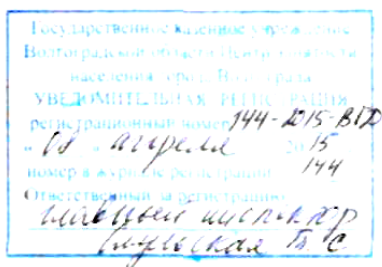 Государственное казенное учреждение
Волгоградской области Центр занятости
населения города Волгограда
УВЕДОМИТЕЛЬНАЯ РЕГИСТРАЦИЯ
регистрационный номер 144-2015-ВГД
" 08 " апреля 2015
номер в журнале регистрации 144
Ответственный за регистрацию
главный инспектор